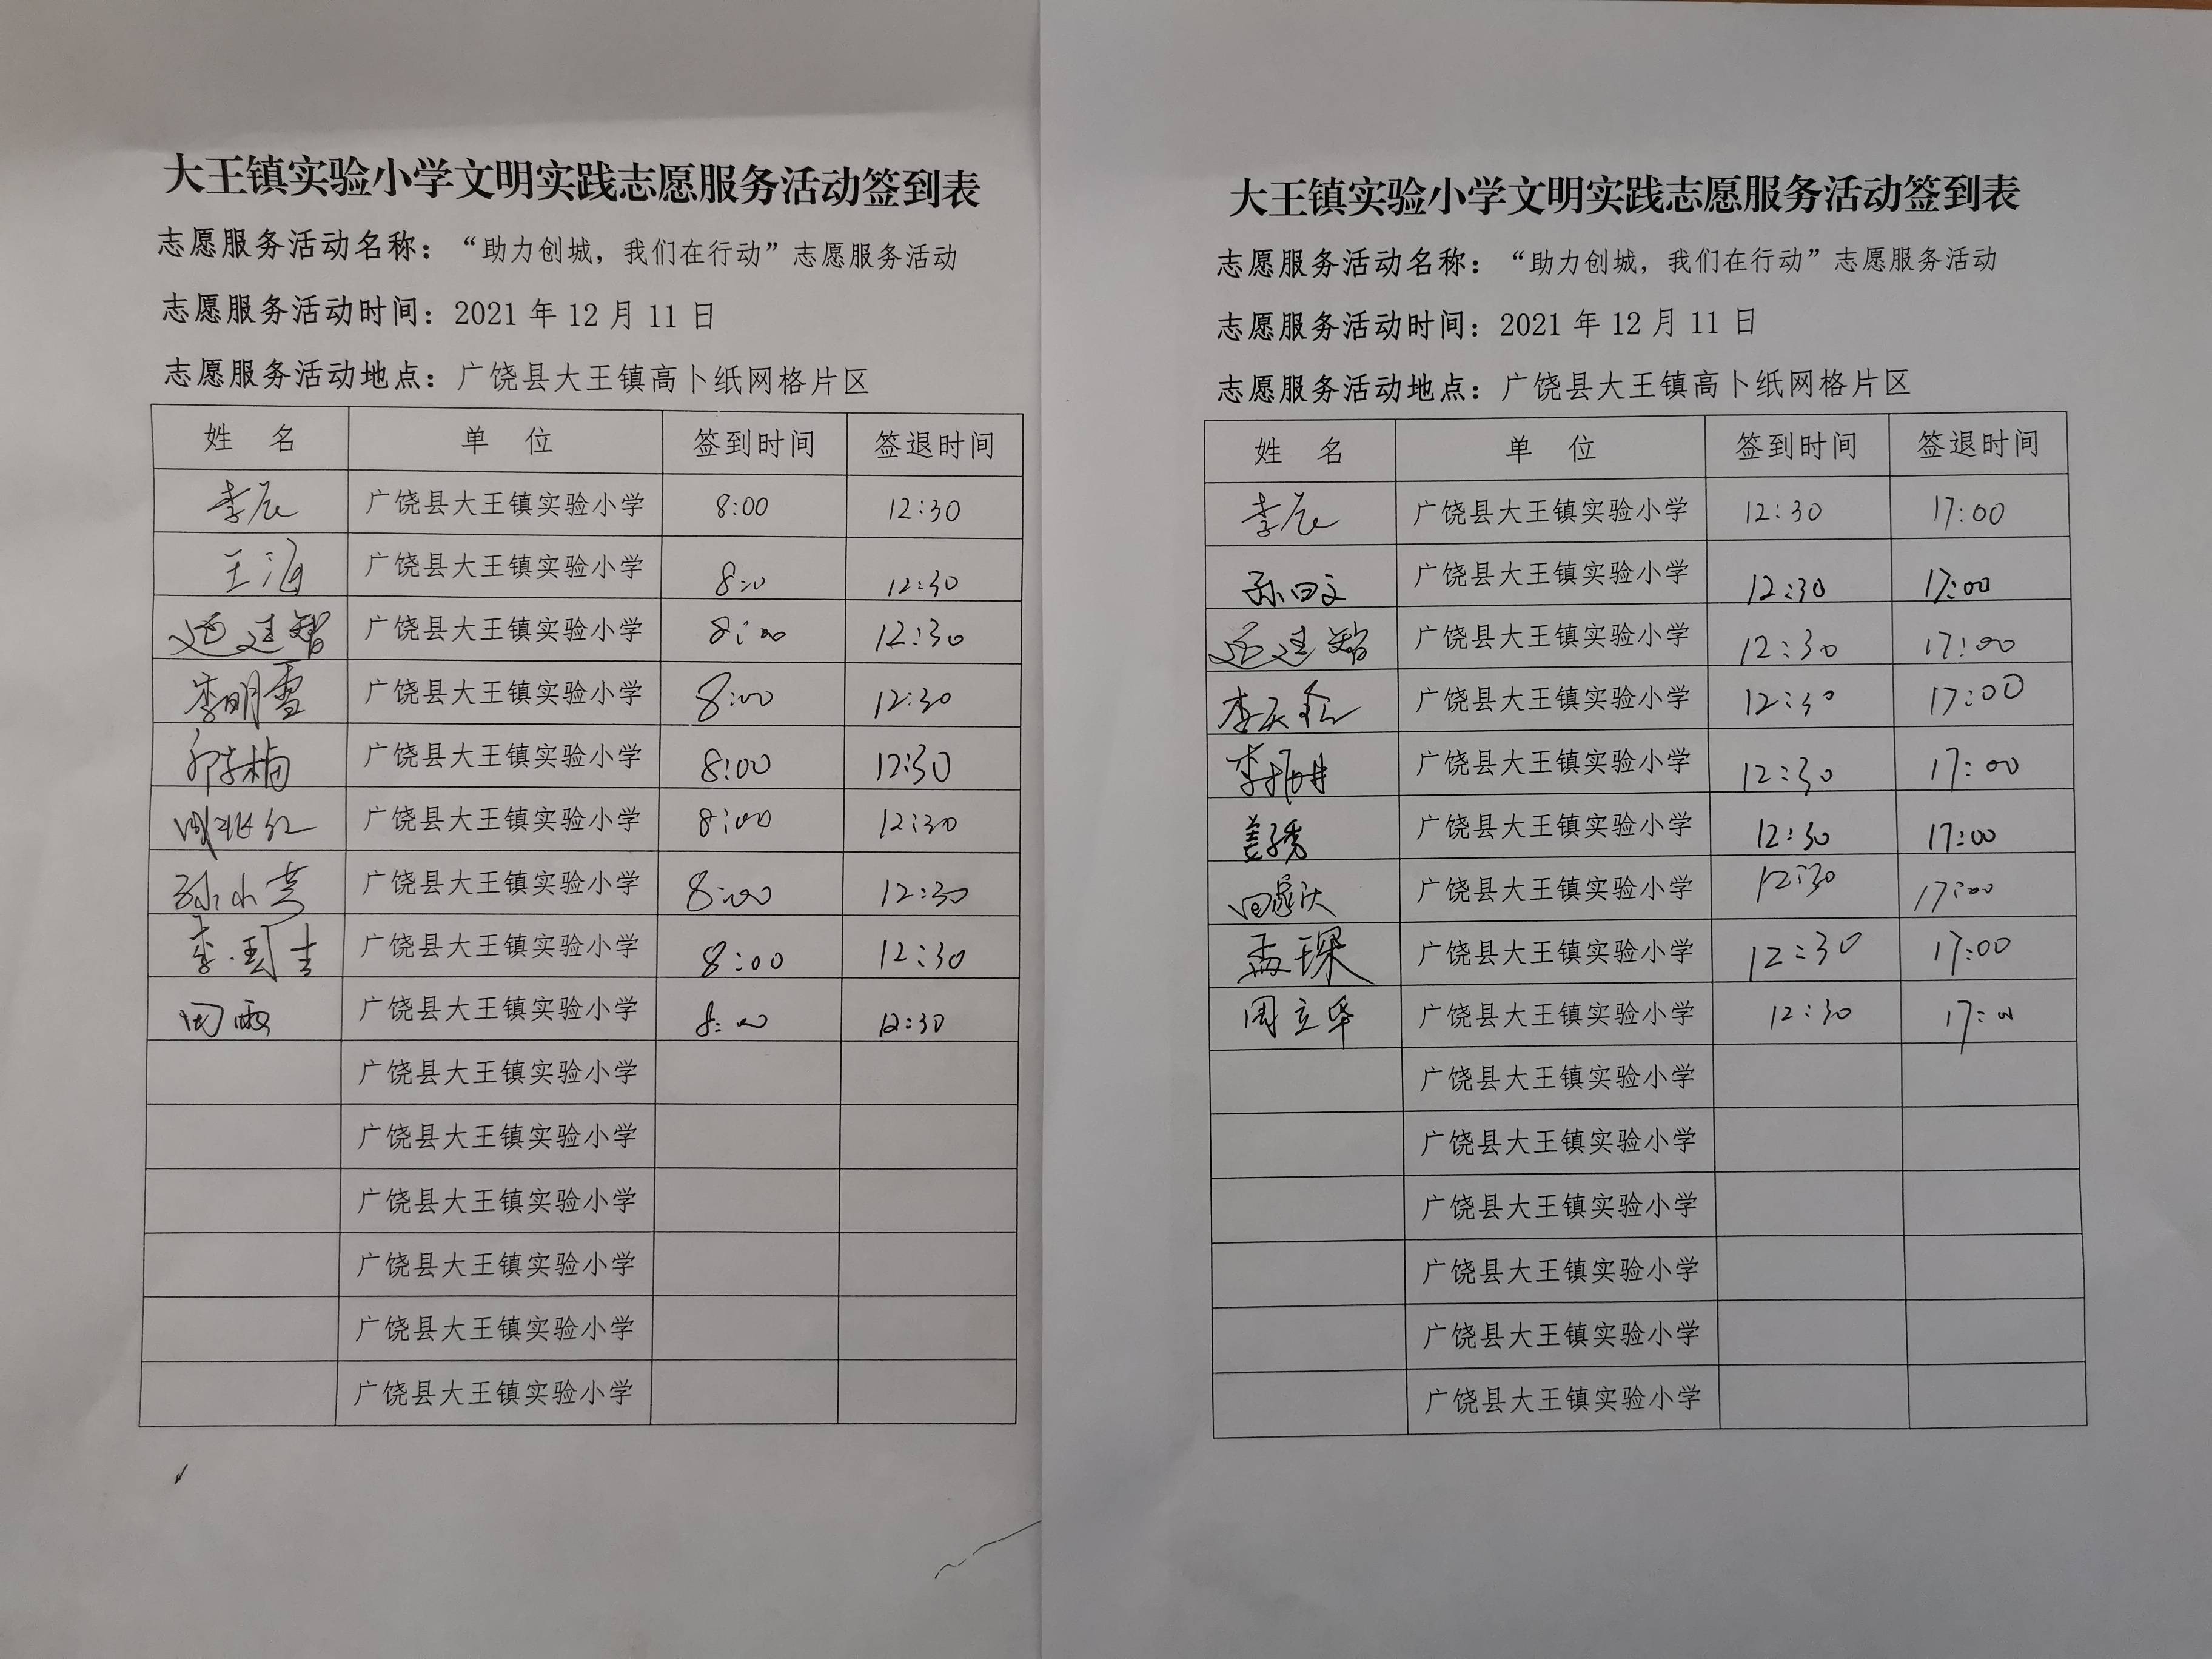 大王镇实验小学文明实践志愿服务活动签到表
志愿服务活动名称：“助力创城，我们在行动”志愿服务活动
志愿服务活动时间：2021年12月11日
志愿服务活动地点：广饶县大王镇高卜纸网格片区
姓 名 单 位 签到时间 签退时间
李辰 广饶县大王镇实验小学 8:00 12:30
王海 广饶县大王镇实验小学 8:00 12:30
延建智 广饶县大王镇实验小学 8:00 12:30
李明雪 广饶县大王镇实验小学 8:00 12:30
广饶县大王镇实验小学 8:00 12:30
广饶县大王镇实验小学 8:00 12:30
广饶县大王镇实验小学 8:00 12:30
广饶县大王镇实验小学 8:00 12:30
广饶县大王镇实验小学 8:00 12:30
广饶县大王镇实验小学
广饶县大王镇实验小学
广饶县大王镇实验小学
广饶县大王镇实验小学
广饶县大王镇实验小学
广饶县大王镇实验小学
大王镇实验小学文明实践志愿服务活动签到表
志愿服务活动名称：“助力创城，我们在行动”志愿服务活动
志愿服务活动时间：2021年12月11日
志愿服务活动地点：广饶县大王镇高卜纸网格片区
姓 名 单 位 签到时间 签退时间
李辰 广饶县大王镇实验小学 12:30 17:00
广饶县大王镇实验小学 12:30 17:00
延建智 广饶县大王镇实验小学 12:30 17:00
广饶县大王镇实验小学 12:30 17:00
广饶县大王镇实验小学 12:30 17:00
广饶县大王镇实验小学 12:30 17:00
田家庆 广饶县大王镇实验小学 12:30 17:00
孟琛 广饶县大王镇实验小学 12:30 17:00
周立华 广饶县大王镇实验小学 12:30 17:00
广饶县大王镇实验小学
广饶县大王镇实验小学
广饶县大王镇实验小学
广饶县大王镇实验小学
广饶县大王镇实验小学
广饶县大王镇实验小学